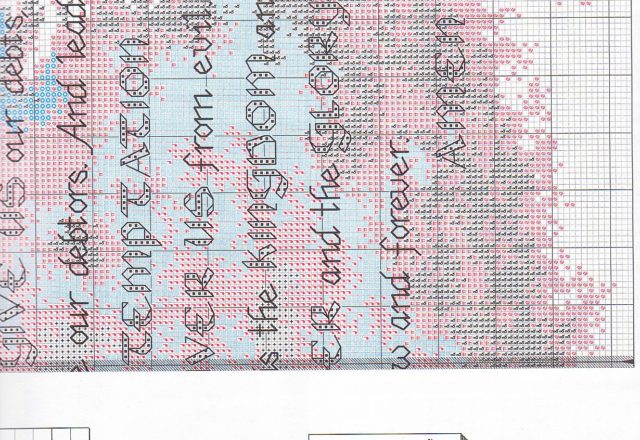 GIVE US our debts
our debtors. And lead
TEMPTATION
VER US from evil
s the KINGDOM an
ER and the GLORY
w and forever.
Amen